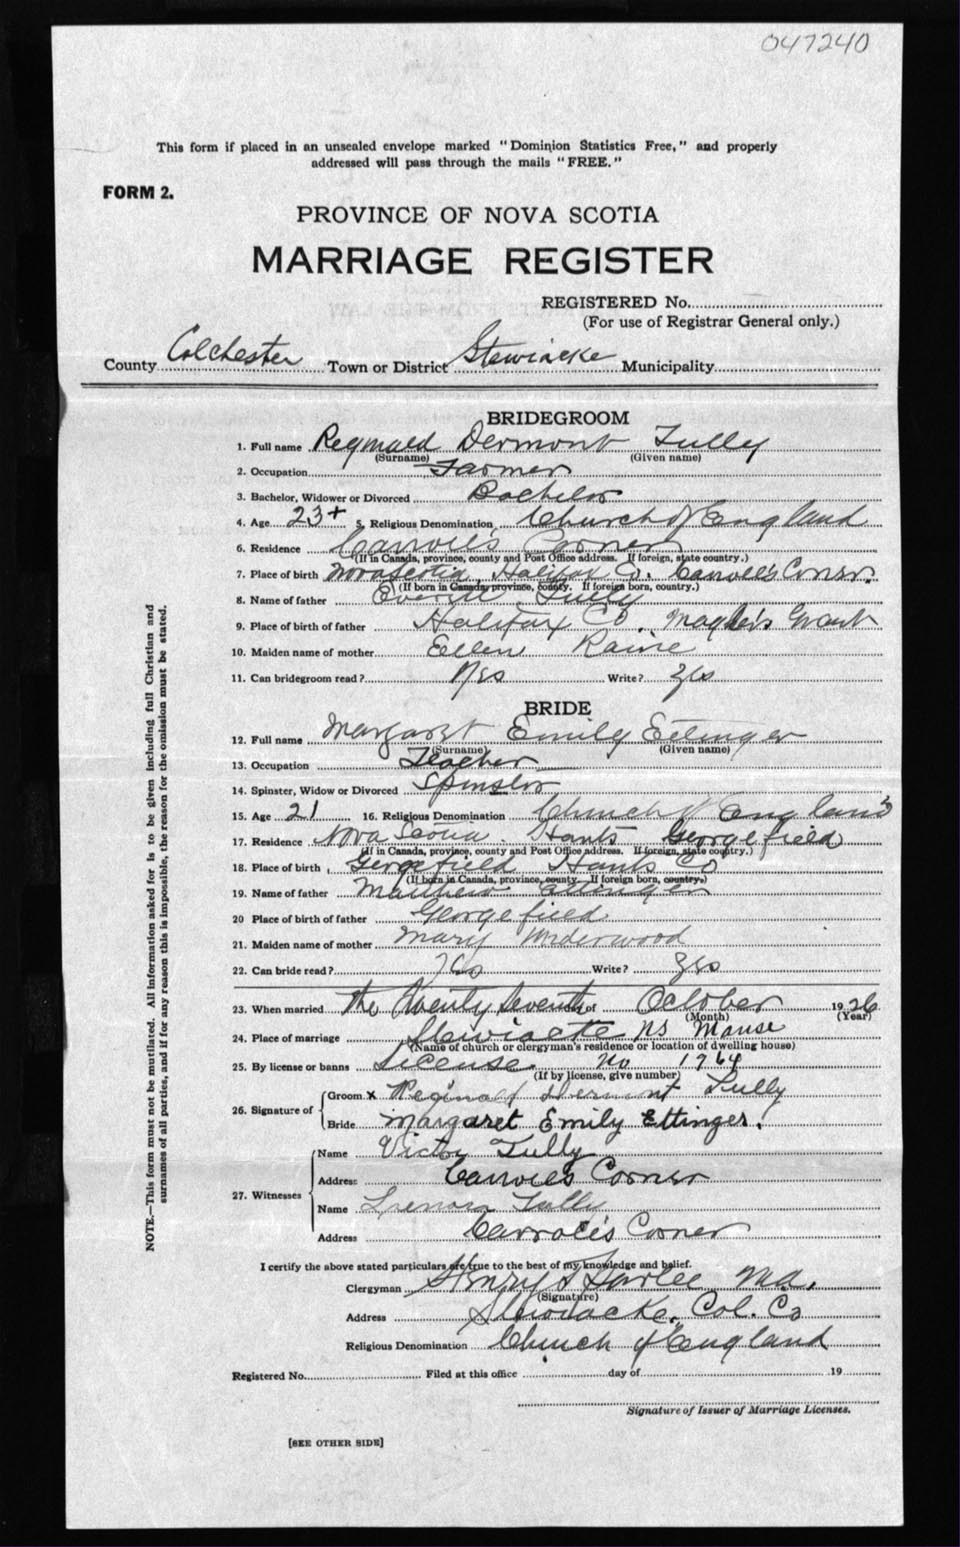 047240
This form if placed in an unsealed envelope marked "Dominion Statistics Free," and properly
addressed will pass through the mails "FREE."
FORM 2.
PROVINCE OF NOVA SCOTIA
MARRIAGE REGISTER
REGISTERED No.
(For use of Registrar General only.)
County Colchester Town or District Stewiacke Municipality
BRIDEGROOM
1. Full name Reginald Dermont Tully
(Surname) (Given name)
2. Occupation Farmer
3. Bachelor, Widower or Divorced Bachelor
4. Age 23+ 5. Religious Denomination Church of England
6. Residence Carroll's Corner
(If in Canada, province, county and Post Office address. If foreign, state country.)
7. Place of birth Nova Scotia Halifax Co. Carroll's Corner.
(If born in Canada, province, county. If foreign born, country.)
8. Name of father Everett Tully
9. Place of birth of father Halifax Co. Grant
10. Maiden name of mother Ellen Raine
11. Can bridegroom read? Yes Write? Yes
BRIDE
12. Full name Margaret Emily Ettinger
(Surname) (Given name)
13. Occupation Teacher
14. Spinster, Widow or Divorced Spinster
15. Age 21 16. Religious Denomination Church of England
17. Residence Nova Scotia. Hants Georgefield
(If in Canada, province, county and Post Office address. If foreign, state country.)
18. Place of birth Gergefield Hants Co
(If born in Canada, province, county. If foreign born, country.)
19. Name of father Matthew Ettinger
20 Place of birth of father Georgefield
21. Maiden name of mother Mary Underwood
22. Can bride read? Yes Write? Yes
23. When married the Twenty Seventh day of October 1926
(Month) (Year)
24. Place of marriage Stewiacke NS Manse
(Name of church or clergyman's residence or location of dwelling house)
25. By license or banns License No 1764
(If by license, give number)
26. Signature of
Groom X Reginald Dermont Tully
Bride Margaret Emily Ettinger.
27. Witnesses
Name Victor Tully
Address Carroll's Corner
Name Tully
Address Carroll's Corner
I certify the above stated particulars are true to the best of my knowledge and belief.
Clergyman Henry M.A.
(Signature)
Address Stewiacke. Col. Co
Religious Denomination Church of England
Registered No. Filed at this office day of 19
Signature of Issuer of Marriage Licenses.
[SEE OTHER SIDE]
NOTE.—This form must not be mutilated. All information asked for is to be given including full Christian and
surnames of all parties, and if for any reason this is impossible, the reason for the omission must be stated.